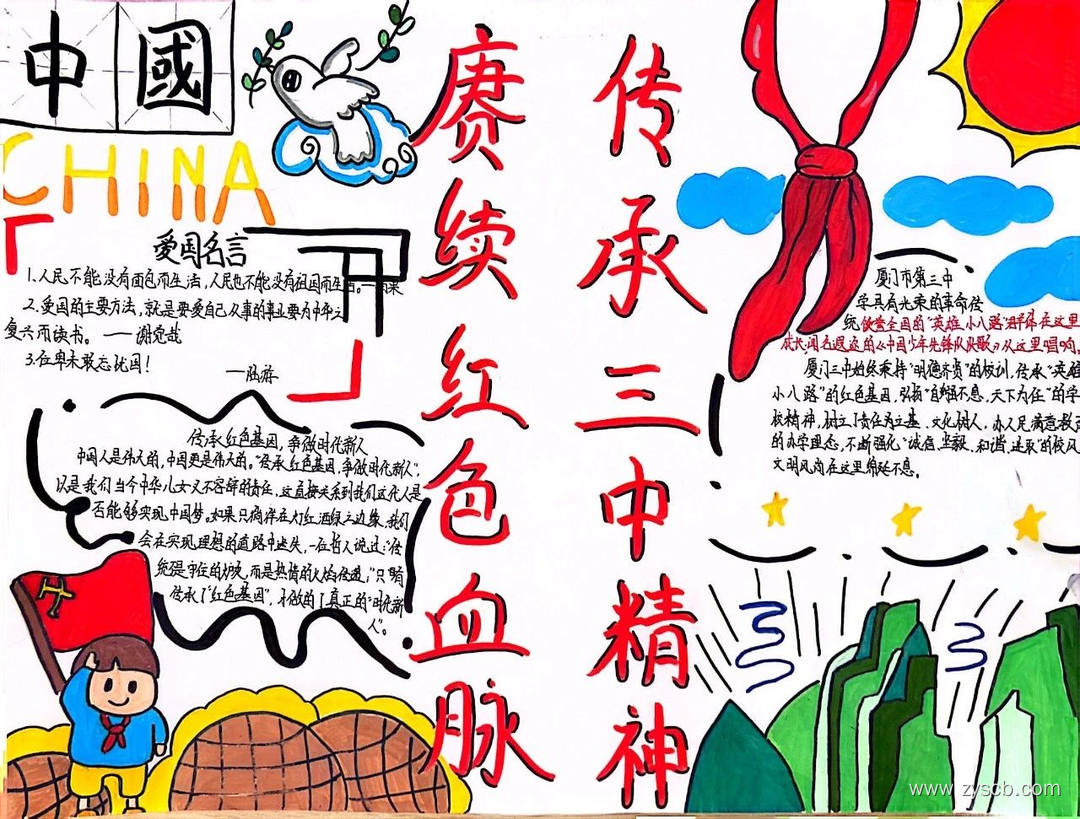 中國
CHINA
爱国名言
1.人民不能没有面包而生活，人民也不能没有祖国而生活。——雨果
2.爱国的主要方法，就是要爱自己从事的事业要为中华之
复兴而读书。——谢觉哉
3.位卑未敢忘忧国！
——陆游
传承红色基因，争做时代新人
中国人是伟大的，中国更是伟大的。"传承红色基因，争做时代新人"，
以是我们当今中华儿女义不容辞的责任，这直接关系到我们这代人是
否能够实现中国梦。如果只徜徉在灯红酒绿之边缘，我们
会在实现理想的道路中迷失，一位哲人说过："传
统是守住的炉灰，而是热情的火焰传递，"只有
传承了"红色基因"，才做的了真正的"时代新
人"。
赓续红色血脉
传承三中精神
厦门市第三中
学具有光荣的革命传
统使誉全国的"英雄小八路"群体在这里
成长闻名遐迩的《中国少年先锋队队歌》从这里唱响。
厦门三中始终秉持"明德齐贤"的校训，传承"英雄
小八路"的红色基因，弘扬"自强不息，天下为任"的学
校精神，树立了责任为立基、文化树人、办人民满意教
的办学理念，不断强化"诚信、坚毅、和谐、进取"的校风
文明风尚在这里绵延不息。
www.zyscb.com